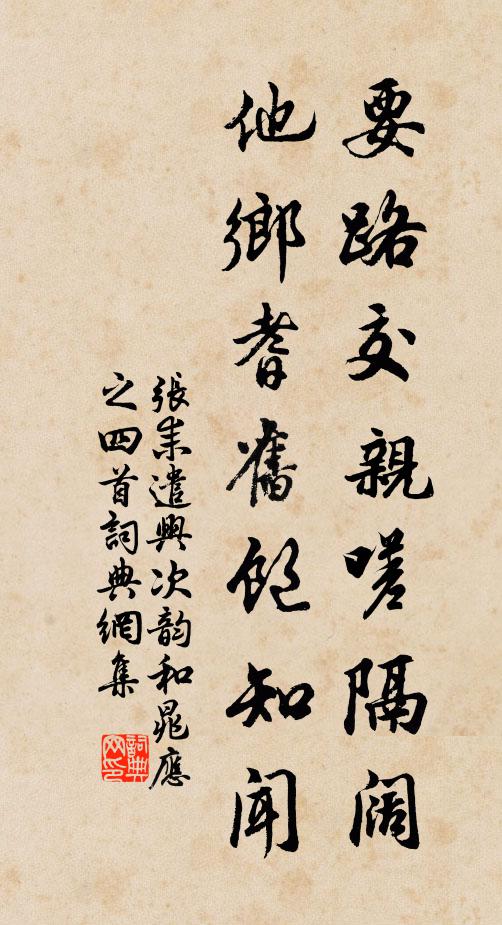 要路交親嗟隔闊
他鄉耆舊飽知聞
張耒遣興次韵和晁應
之四首詞典網集
詞典网印